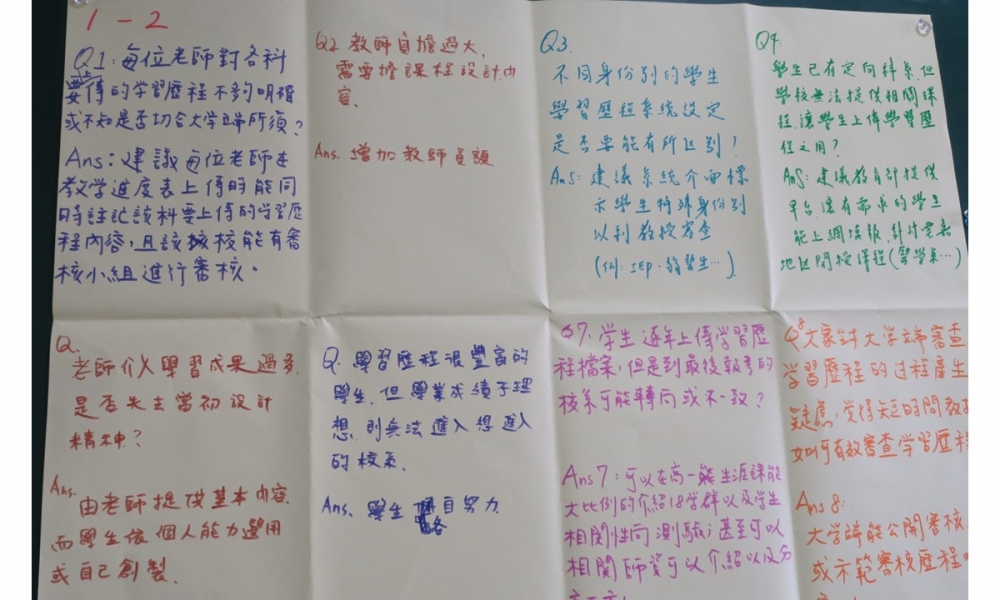 1-2
Q1:每位老師對各科
要上傳的学習歷程不夠明確
或不知是否切合大学端所須?
Ans:建議每位老師在
教学進度表上傳時能同
時註記該科要上傳的学習歷
程內容,且該校能有審
核小組進行審核。
Q2 教師負擔過大,
需要擔課程設計內
容.
Ans. 增加教師員額
Q3.
不同身份別的學生
學習歷程系統設定
是否要能有所區別?
Ans:建議系統介面標
示學生特殊身份別
以利教授審查
(例:IEP、
Q4.
學生已有定向科系,但
學校無法提供相關課
程,讓學生上傳學習歷
程之用?
Ans:建議教育部提供
平台,讓有需求的學生
能上網填報,
地區開授課程(
Q.
老師介入學習成果過多,
是否失去當初設計
精神?
Ans.
由老師提供基本內容,
而學生依個人能力選用
或自己創製.
Q. 學習歷程很豐富的
學生,但學業成績不理
想,則無法進入想進入
的校系.
Ans. 學生各自努力.
Q7.学生逐年上傳学習歷
程檔案,但是到最後報考的
校系可能轉向或不一致?
Ans7:可以在高一能生涯課能
大比例的介紹18学群以及学生
相關性向測驗;甚至可以
相關師資可以介紹以及分
Q8大家對大学端審查
学習歷程的过程產生
疑慮,覺得短時間教
如何有效審查学習歷程
Ans8:
大学端能公開審核
或示範審核歷程